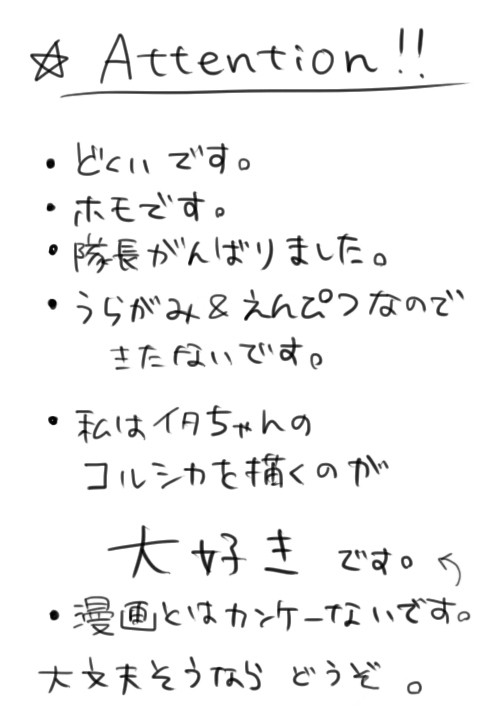 ☆ Attention!!
・どくいです。
・ホモです。
・隊長がんばりました。
・うらがみ&えんぴつなので
きたないです。
・私はイタちゃんの
コルシカを描くのが
大好きです。
・漫画とはカンケーないです。
大丈夫そうなら どうぞ。